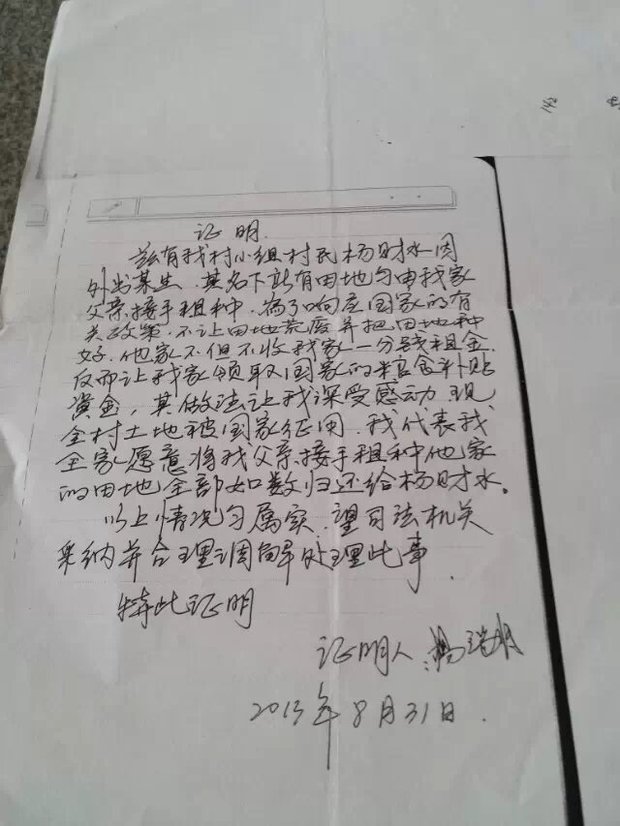 证明
兹有我村小组村民杨财水因
外出谋生.其名下所有田地匀由我家
父亲接手租种.为了响应国家的有
关政策.不让田地荒废并把田地种
好.他家不但不收我家一分钱租金.
反而让我家领取国家的粮食补贴
资金,其做法让我深受感动.现
全村土地被国家征用.我代表我
全家愿意将我父亲接手租种他家
的田地全部如数归还给杨财水。
以上情况匀属实.望司法机关
采纳并合理调解处理此事.
特此证明
证明人:杨瑞
2015年8月31日.
142